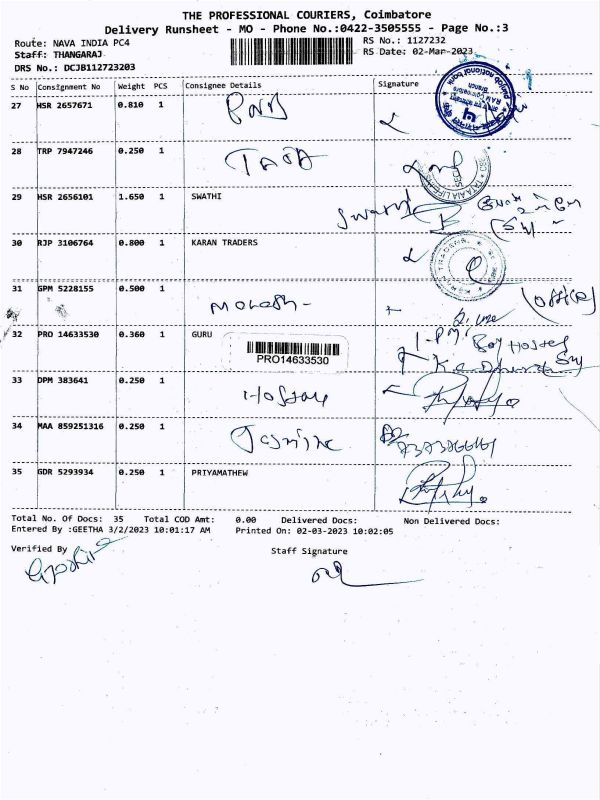 THE PROFESSIONAL COURIERS, Coimbatore
Delivery Runsheet - MO - Phone No.:0422-3505555 - Page No.:3
Route: NAVA INDIA PC4 RS No.: 1127232
Staff: THANGARAJ RS Date: 02-Mar-2023
DRS No.: DCJB112723203
S No Consignment No Weight PCS Consignee Details Signature
27 HSR 2657671 0.810 1 PNB
28 TRP 7947246 0.250 1 TATA
29 HSR 2656101 1.650 1 SWATHI Swathi
30 RJP 3106764 0.800 1 KARAN TRADERS
31 GPM 5228155 0.500 1
32 PRO 14633530 0.360 1 GURU
PRO14633530
Boy Hostel
33 DPM 383641 0.250 1
34 MAA 859251316 0.250 1
35 GDR 5293934 0.250 1 PRIYAMATHEW
Total No. Of Docs: 35 Total COD Amt: 0.00 Delivered Docs: Non Delivered Docs:
Entered By :GEETHA 3/2/2023 10:01:17 AM Printed On: 02-03-2023 10:02:05
Verified By Staff Signature